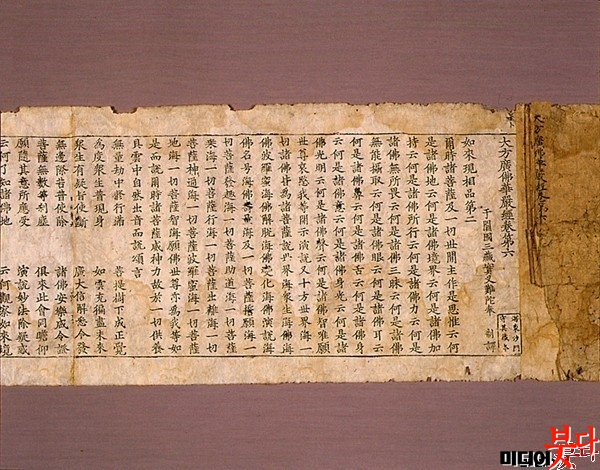 大方廣佛華嚴經卷第六
于闐國三藏實叉難陀奉　制譯
如來現相品第二
爾時諸菩薩及一切世間主作是思惟云何
是諸佛地云何是諸佛境界云何是諸佛加
持云何是諸佛所行云何是諸佛力云何是
諸佛無所畏云何是諸佛三昧云何是諸佛
無能攝取云何是諸佛眼云何是諸佛耳云
何是諸佛鼻云何是諸佛舌云何是諸佛身
云何是諸佛意云何是諸佛身光云何是諸
佛光明云何是諸佛聲云何是諸佛智唯願
世尊哀愍我等開示演說又十方世界海一
切諸佛皆為諸菩薩說世界海衆生海佛海
佛波羅蜜海佛解脫海佛變化海佛演說海
佛名号海佛壽量海及一切菩薩誓願海一
切菩薩發趣海一切菩薩助道海一切菩薩
乘海一切菩薩行海一切菩薩出離海一切
菩薩神通海一切菩薩波羅蜜海一切菩薩
地海一切菩薩智海願佛世尊亦為我等如
是而說爾時諸菩薩威神力故於一切供養
具雲中自然出音而說頌言
無量劫中修行滿　菩提樹下成正覺
為度衆生普現身　如雲充徧盡未來
衆生有疑皆使斷　廣大信解悉令發
無邊際苦普使除　諸佛安樂咸令證
菩薩無數等刹塵　俱來此會同瞻仰
願隨其意所應受　演說妙法除疑惑
云何了知諸佛地　云何觀察如來境
海東沙門
守其藏本
붓다
미디어